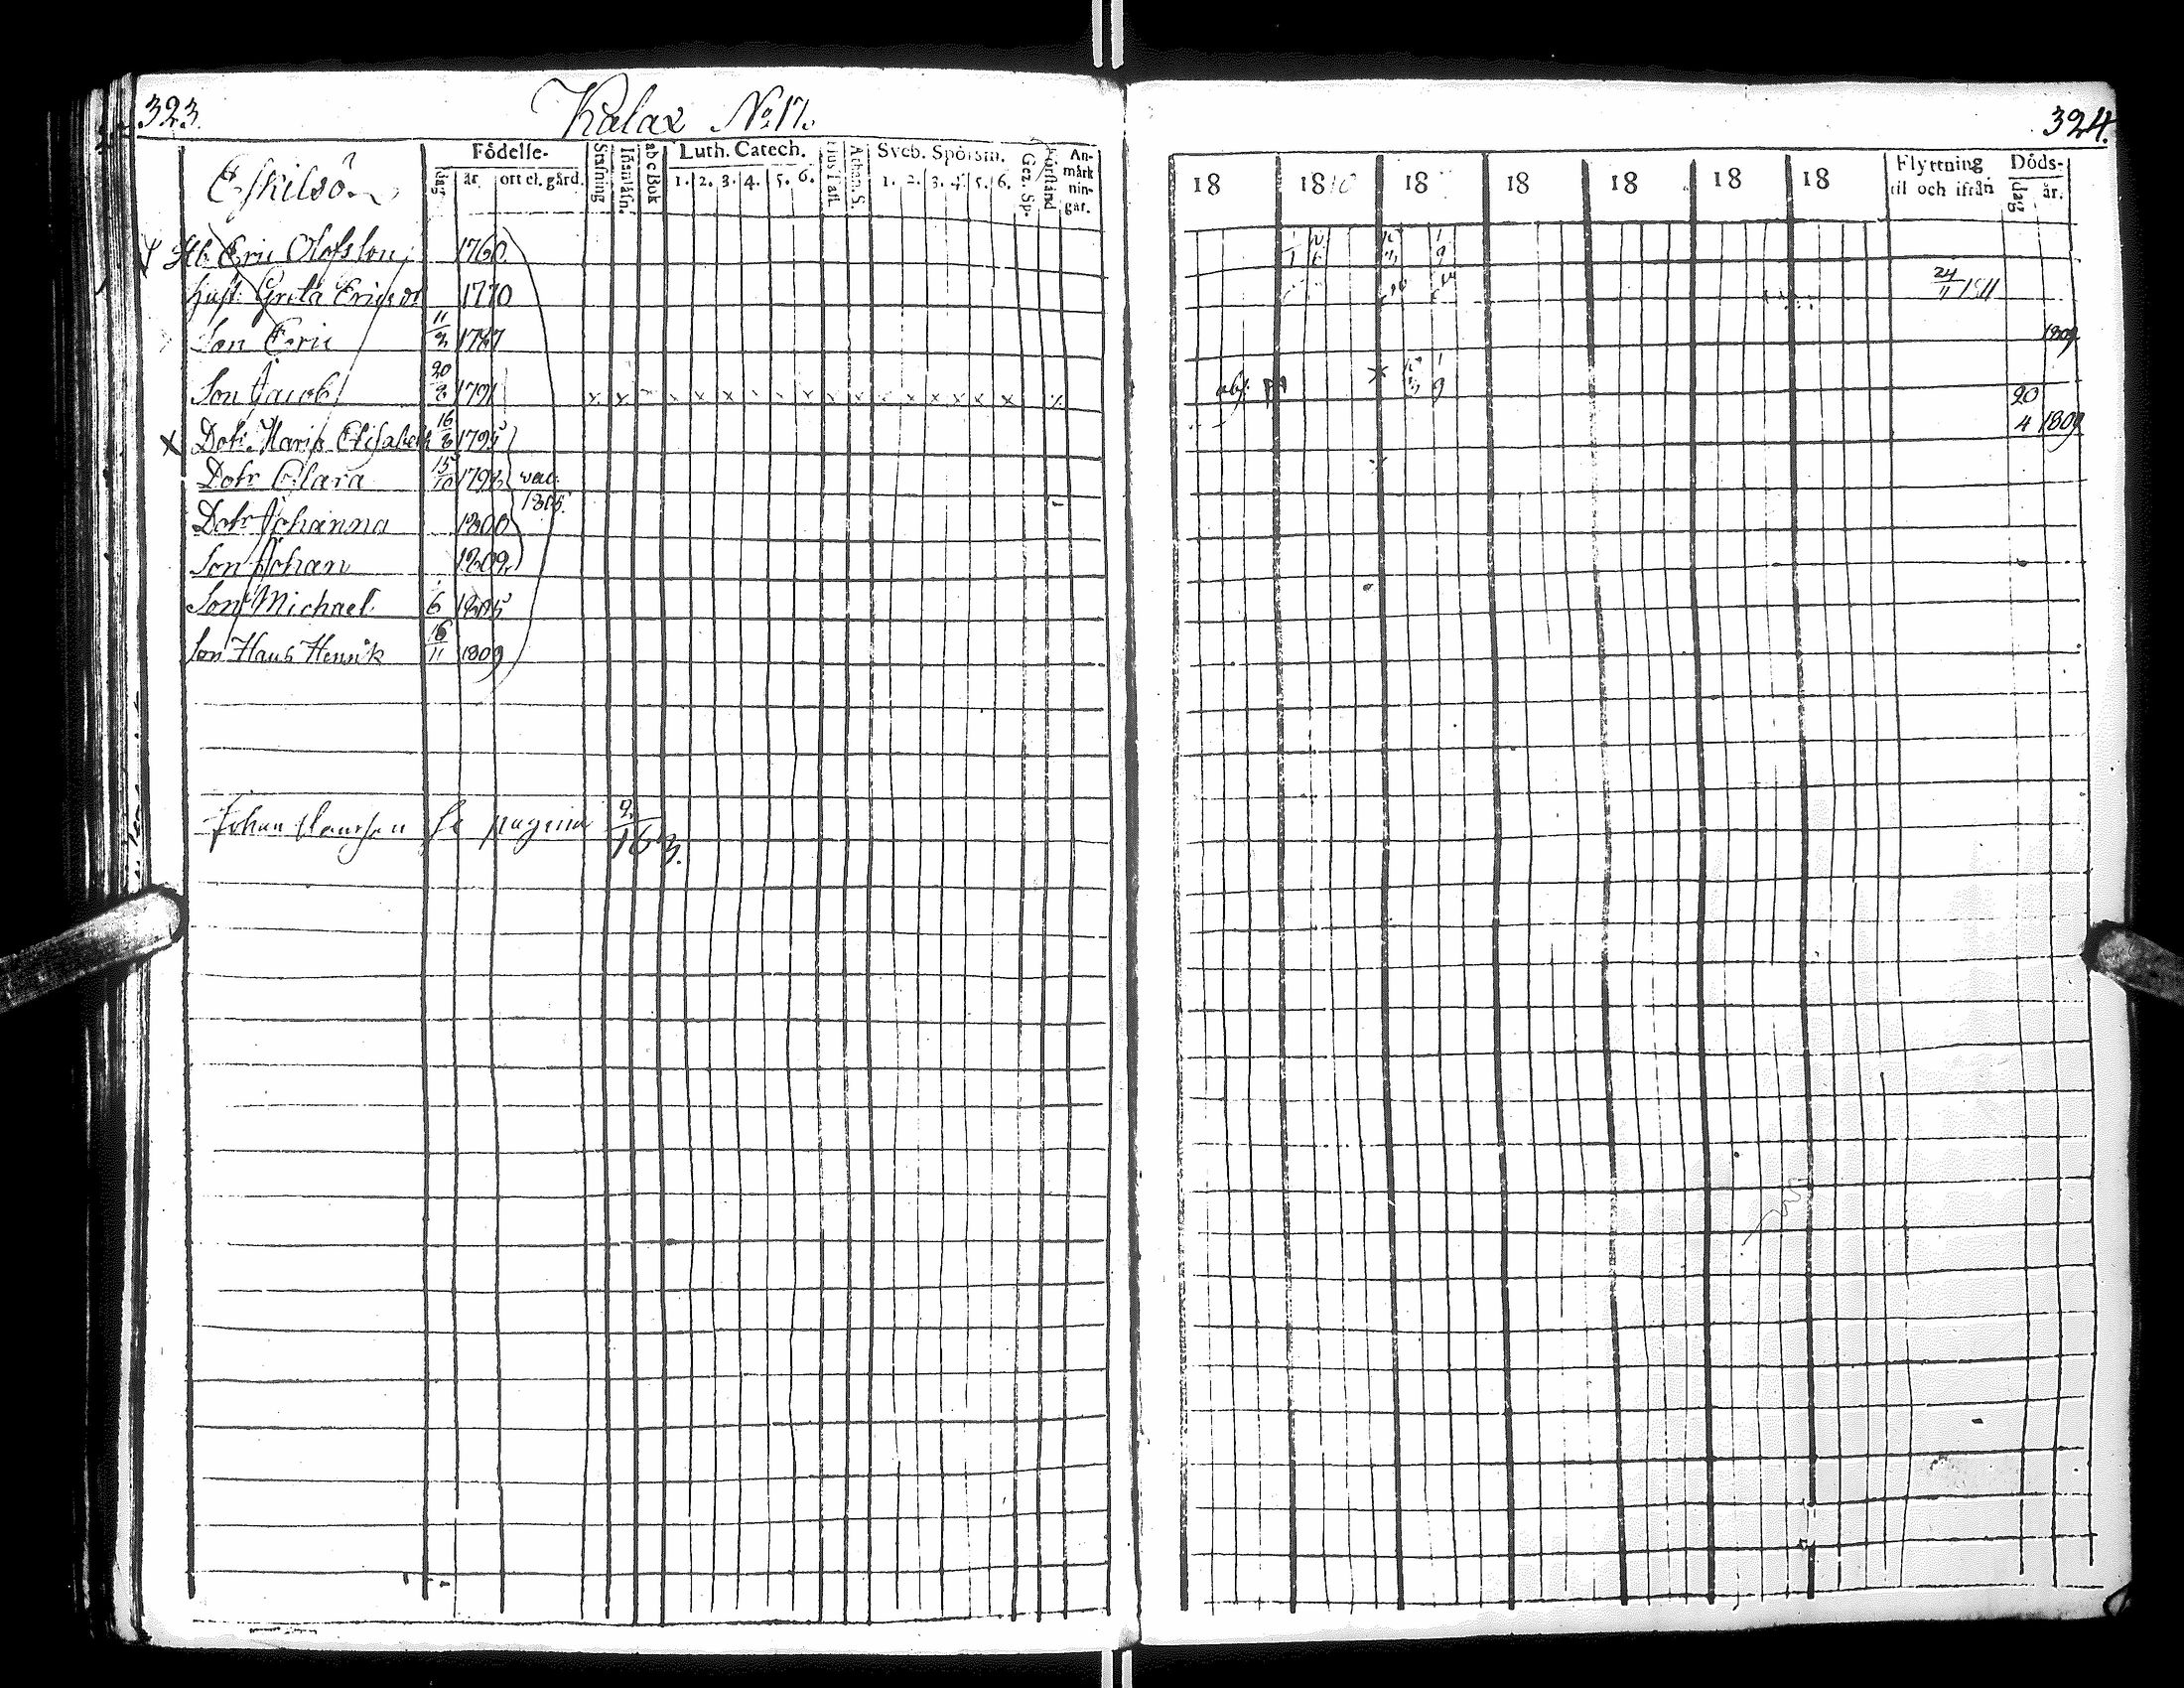 323.
Kalax No 17.
Eskilsö
Födelse-
dag
år
ort el. gård.
Stafning
Innanläsn.
abc Bok
Luth. Catech.
1. 2. 3. 4. 5. 6.
Hust afl.
Athan. S.
Sveb. Spörsm.
1. 2. 3. 4. 5. 6.
Gez. Sp.
Förstånd
An-
märk
nin-
gar.
Eric Olofsson 1760
hust. Greta Ericsdr 1770
Son Eric 11/2 1787
Son Jacob 20/8 1791 x x x x x x x x x x x x x x x x x
x Dotr Maria Elisabeth 16/8 1795
Dotr Clara 15/10 1798 vac.
1805.
Dotr Johanna 1800
Son Johan 1802
Son Michael 6 1805
Son Hans Henrik 16/11 1809
Johan Hansson se pagina 2/163.
324.
18 1810 18 18 18 18 18
Flyttning
til och ifrån
Döds-
dag
år.
24/11 1811
1809
abs.
20
4 1809